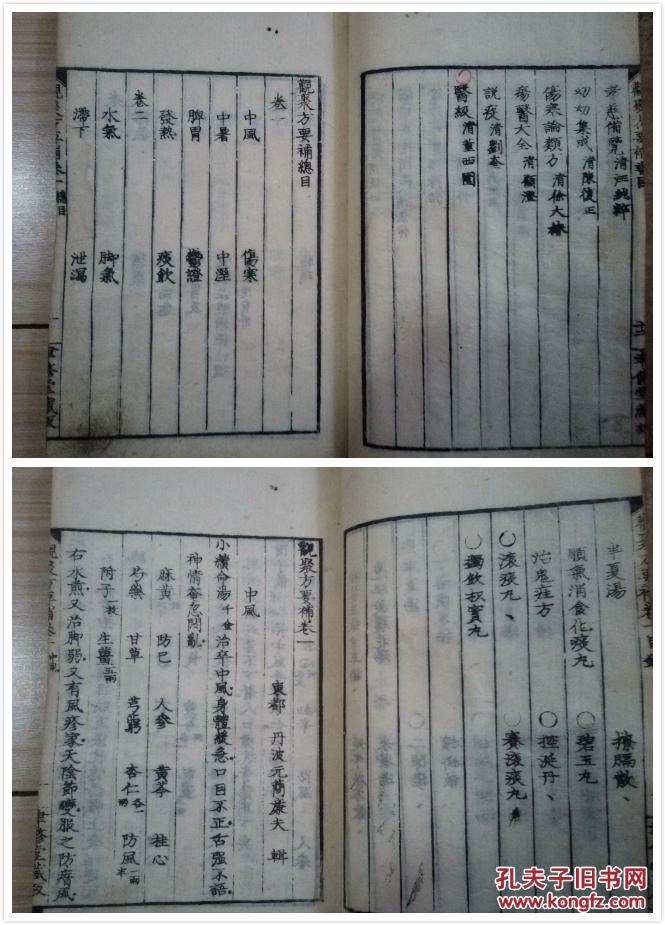 老老恆言
幼幼集成 清陳復正
傷寒論類方 清徐大椿
瘍醫大全 清顧澄
説疫 清劉奎
醫級 清董西園
觀聚方要補總目
卷一
中風 傷寒
中暑 中溼
脾胃 鬱證
發熱 痰飲
卷二
水氣 脚氣
滯下 泄瀉
半夏湯 擦膈散
順氣消食化痰丸 碧玉丸
治鬼疰方 控涎丹
滾痰丸 賽滾痰丸
獨飲枳實丸
觀聚方要補卷一
東都 丹波元簡廉夫 輯
中風
小續命湯 千金 治卒中風身體緩急口目不正舌强不語
神情奮悶亂
麻黃 防已 人參 黃芩 桂心
芍藥 甘草 芎藭 杏仁 防風 一兩半
附子 一枚 生薑 五兩
右水煎又治脚弱又有風疹家天陰節變服之防瘖風
聿修堂藏版
孔夫子旧书网
kongfz.com